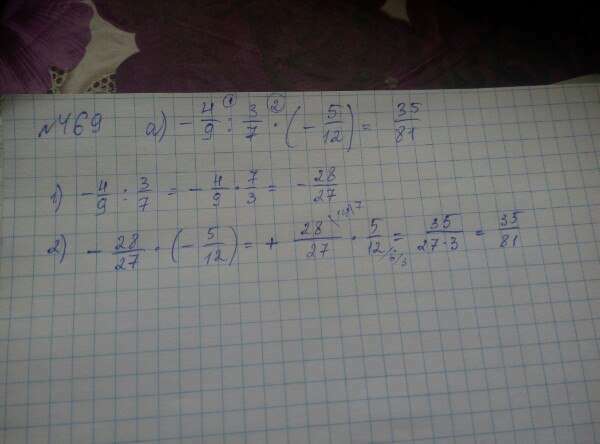 №469 а) -4/9 : 3/7 · (-5/12) = 35/81
① ②
1) -4/9 : 3/7 = -4/9 · 7/3 = -28/27
2) -28/27 · (-5/12) = + 28/27 · 5/12 = 35/27·3 = 35/81